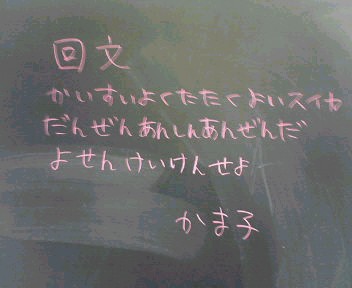 回文
かいすいよくたたくよいスイカ
だんぜんあんしんあんぜんだ
よせんけいけんせよ
かま子